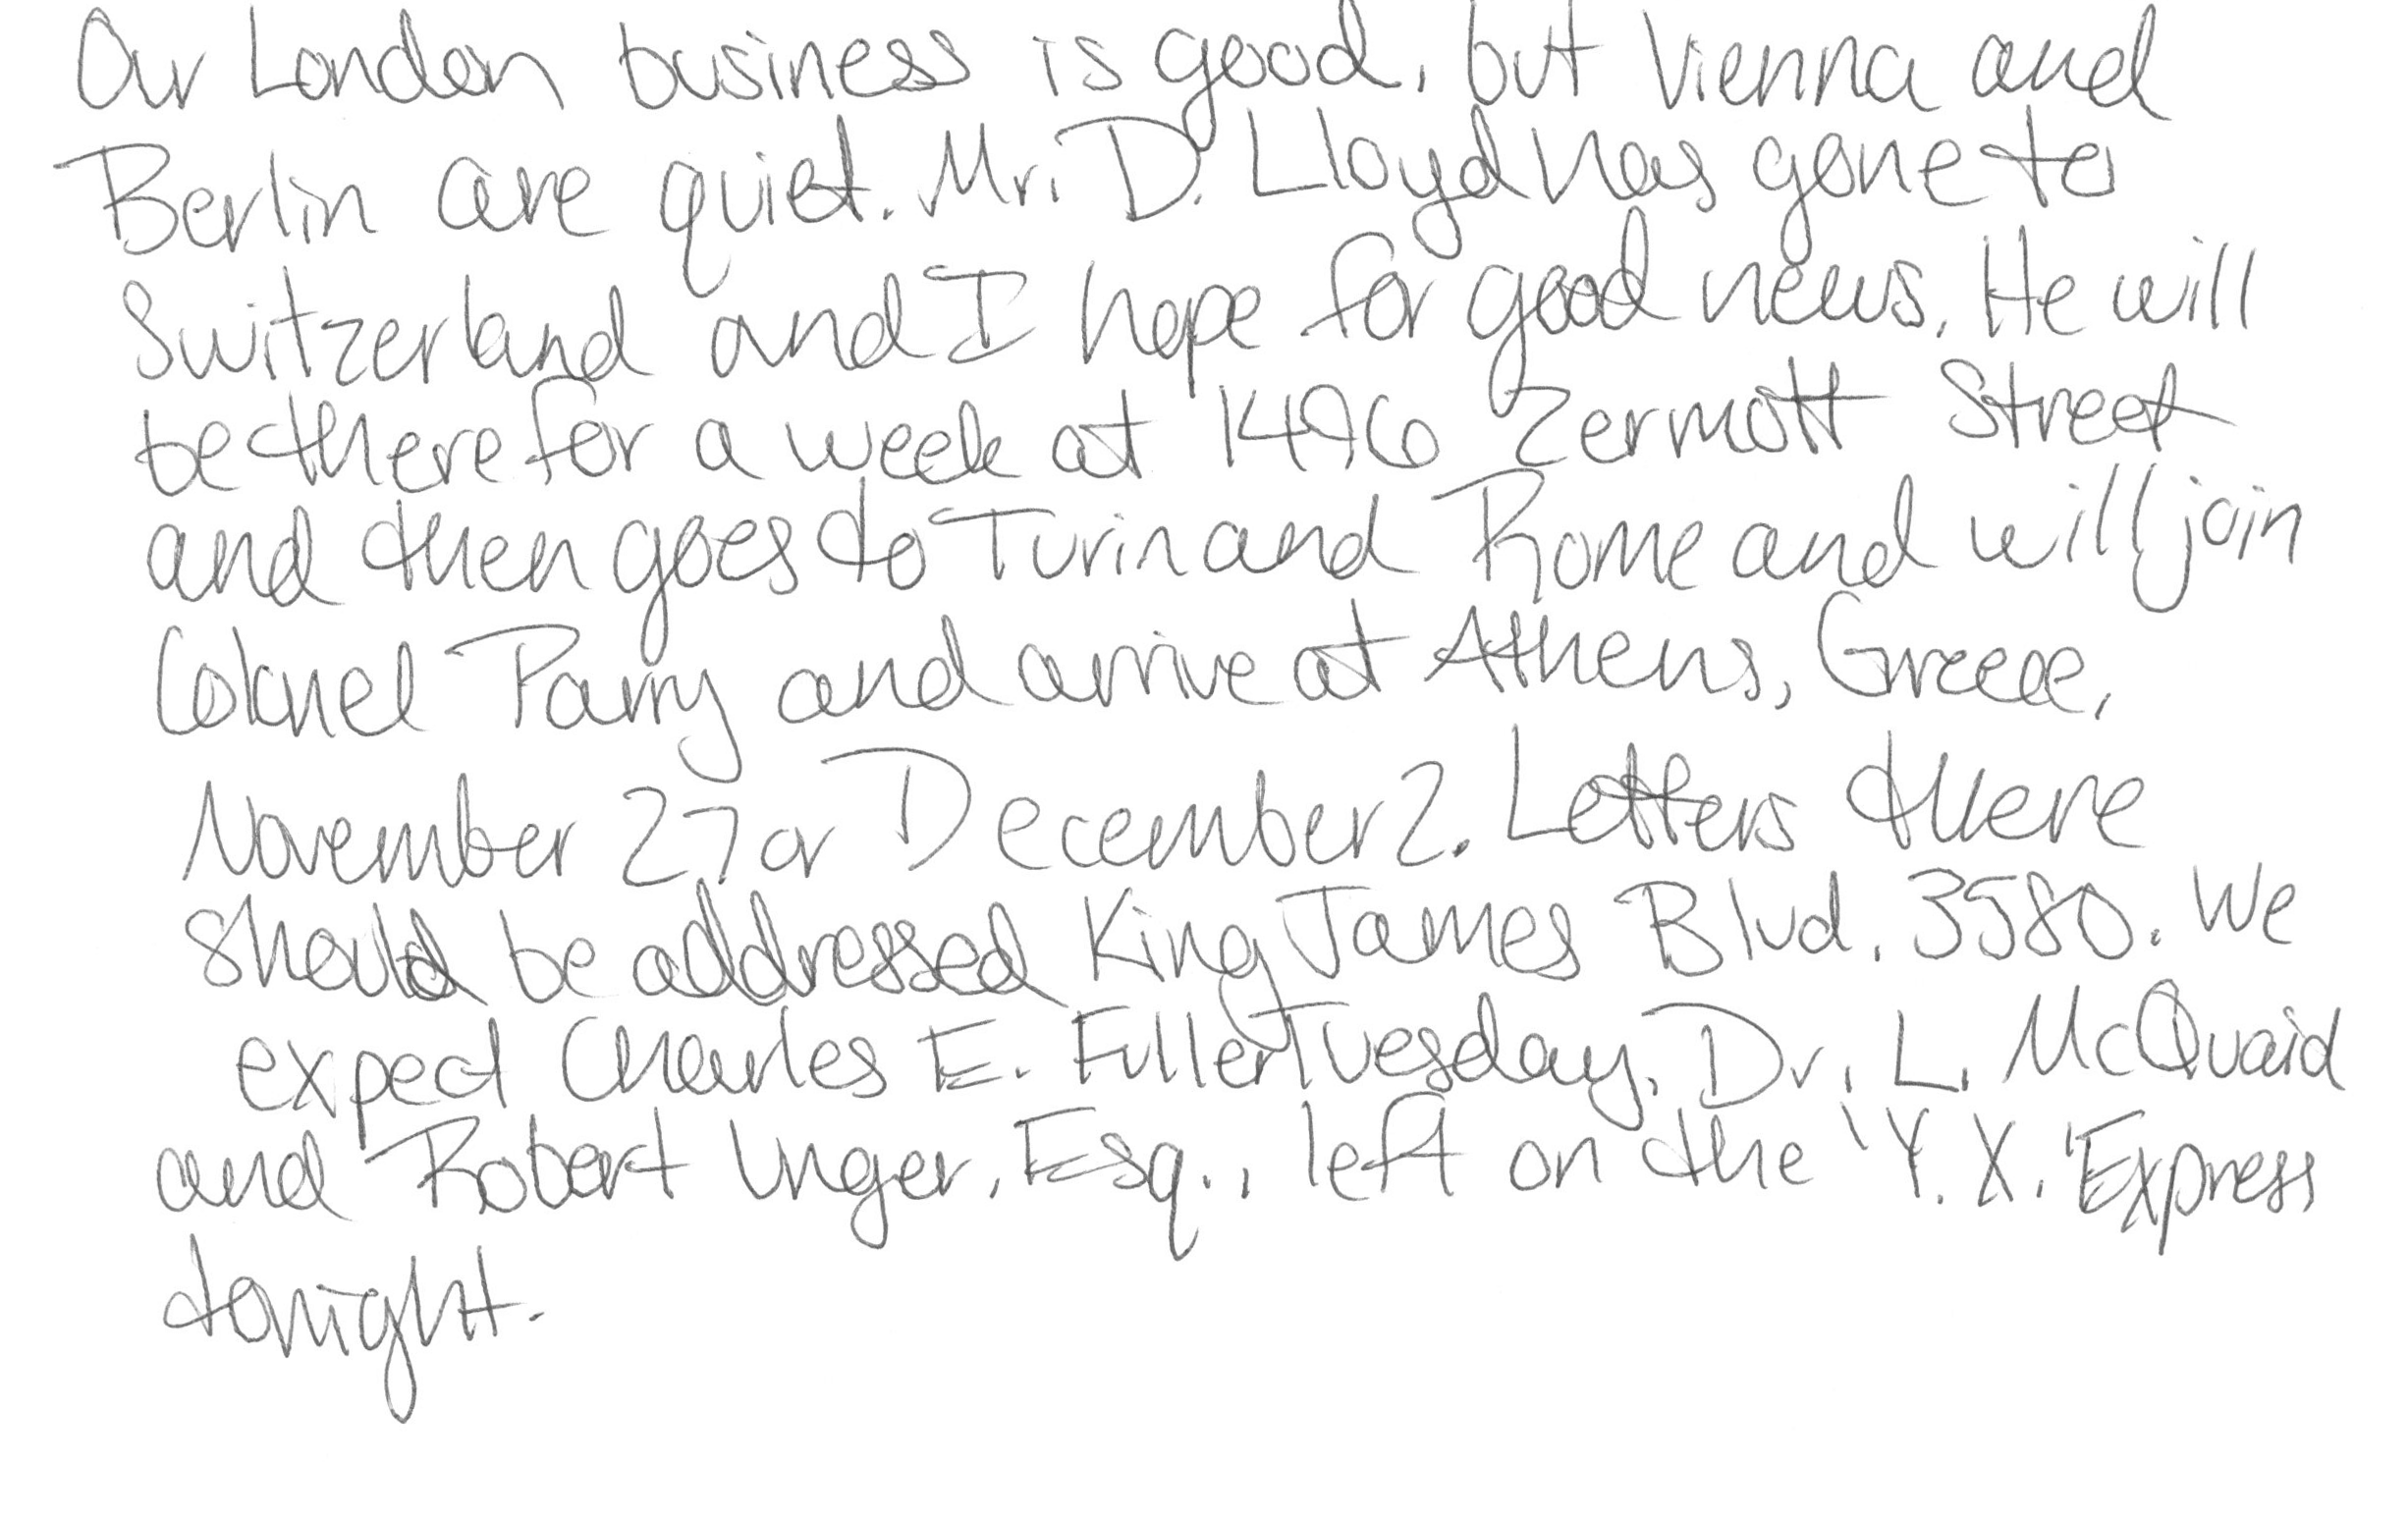 Our London business is good, but Vienna and
Berlin are quiet. Mr. D. Lloyd has gone to
Switzerland and I hope for good news. He will
be there for a week at 1496 Zermott Street
and then goes to Turin and Rome and will join
Colonel Parry and arrive at Athens, Greece,
November 27 or December 2. Letters there
should be addressed King James Blvd. 3580. We
expect Charles E. Fuller Tuesday. Dr. L. McQuaid
and Robert Unger, Esq., left on the 'Y. X.' Express
tonight.